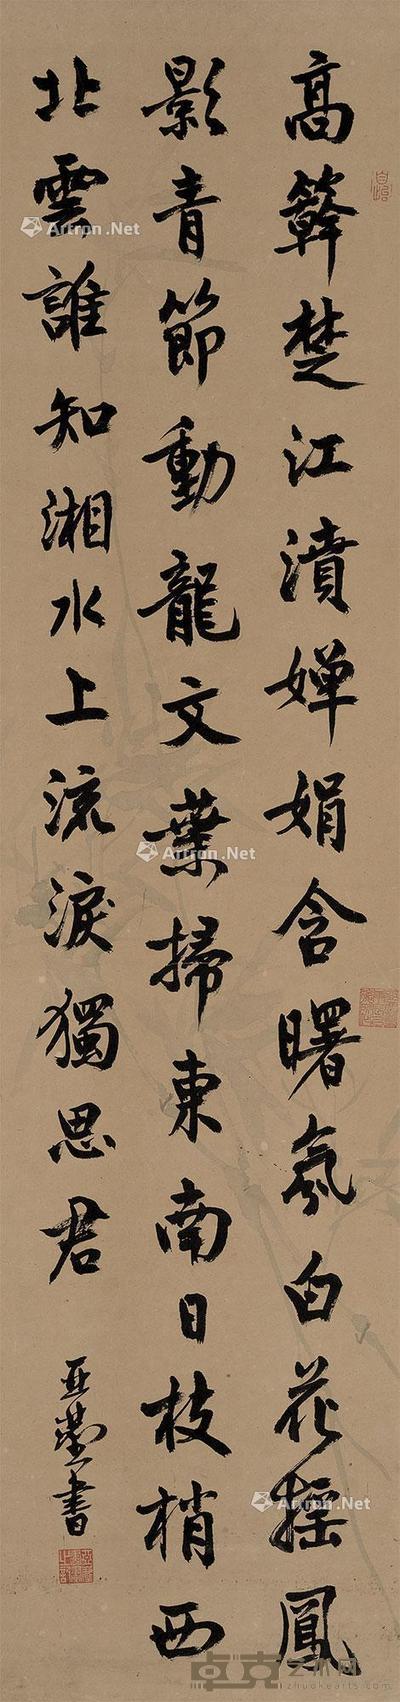 高簳楚江濆嬋娟含曙氛白花摇鳳
影青節動龍文葉掃東南日枝梢西
北雲誰知湘水上流淚獨思君
亞書
Artron.Net
Artron.Net
Artron.Net
Artron.Net
卓克艺术网
zhuokearts.com